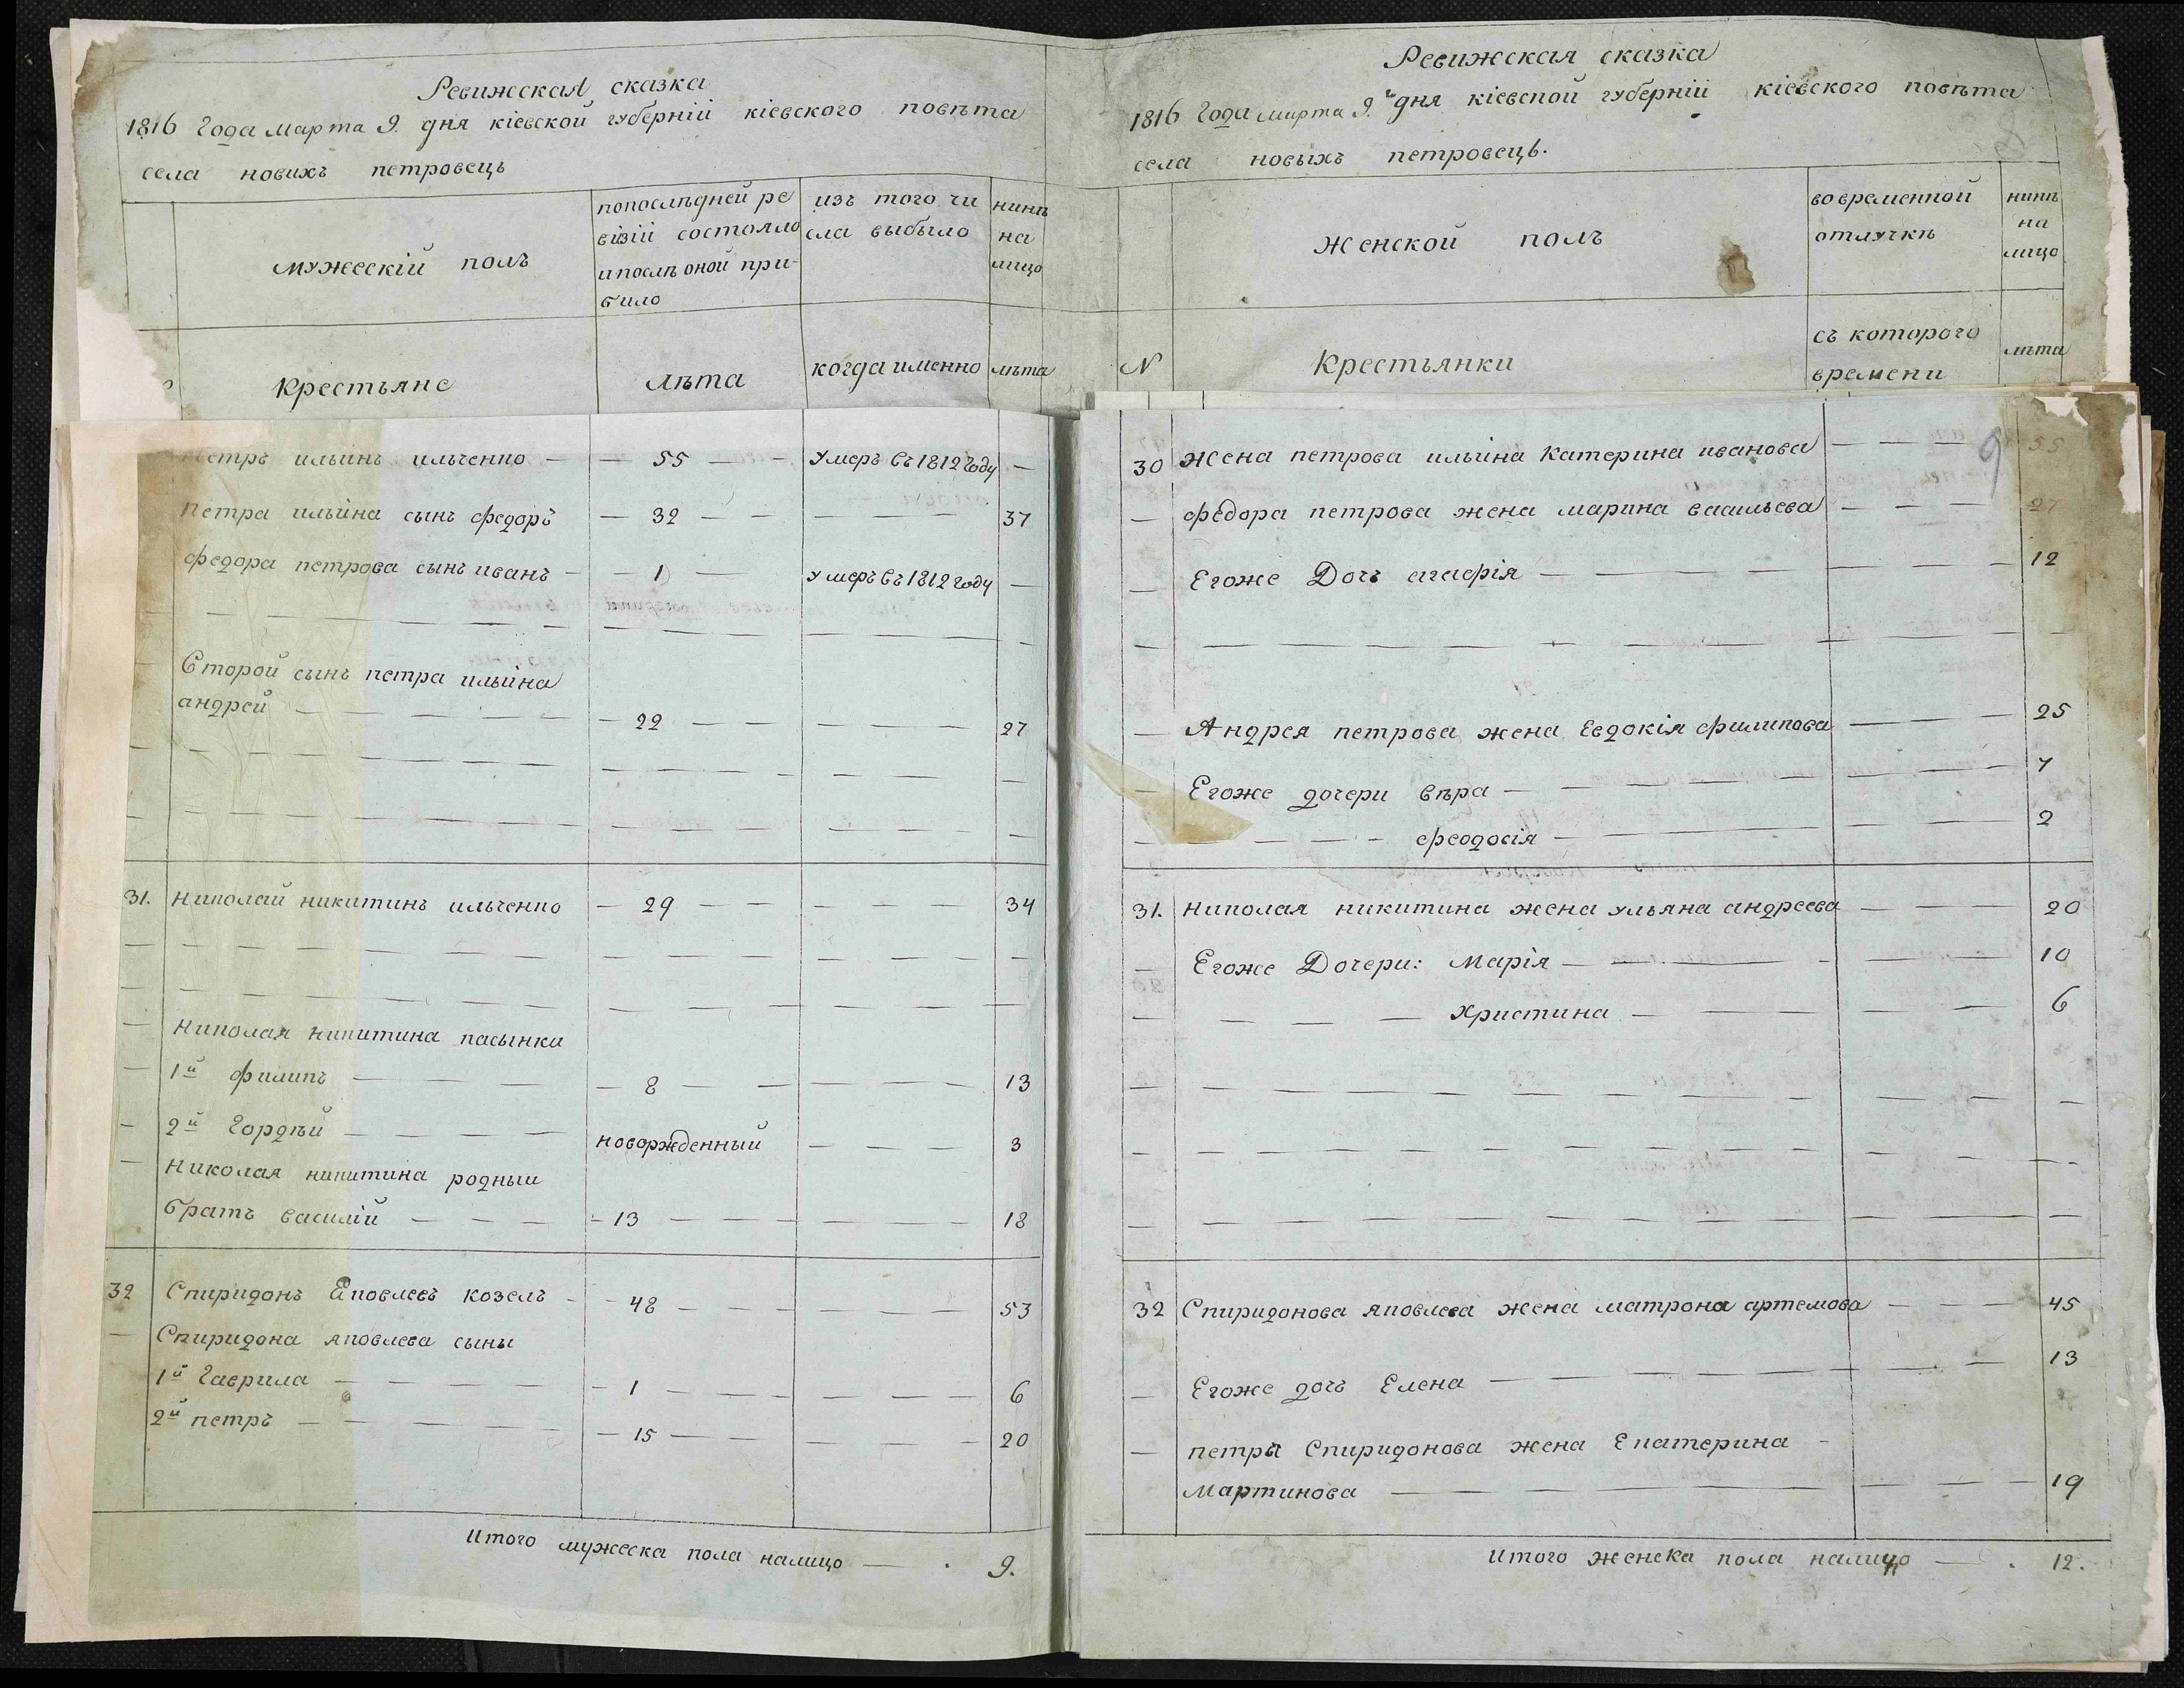 Ревижская сказка
1816 Года марта 9. дня кіевской губерніи кіевского повѣта
села новихъ петровець
мужескій полъ
попослѣдней ре
візіи состояло
ипослѣ оной при-
било
изъ того чи
сла выбыло
нинѣ
на
лицо
Крестьяне
лѣта
когда именно
лѣта
петръ ильинъ ильченко — — 55 — — умеръ въ 1812 году —
петра ильина сынъ федоръ — 32 — — — — — 37
федора петрова сынъ иванъ — — 1 — умеръ въ 1812 году —
Второй сынъ петра ильина
андрей — — — — — 22 — — — — — 27
31. николай никитинъ ильченко — 29 — — — — — 34
николая никитина пасынки
1й филипъ — — — — 8 — — — — — 13
2й Гордѣй — — — — новоржденный — — — 3
николая никитина родныи
братъ василій — — — — 13 — — — — — 18
32 Спиридонъ Яковлевъ козелъ - - 48 — — — — — 53
— Спиридона яковлева сыны
1й Гаврила — — — — 1 — — — — — 6
2й петръ — — — — — 15 — — — — — 20
Итого мужеска пола налицо — . 9.
Ревижская сказка
1816 Года марта 9.й дня кіевской губерніи кіевского повѣта
села новыхъ петровець.
8
N
Женской полъ
вовременной
отлучкѣ
нинѣ
на
лицо
Крестьянки
съ которого
времени
лѣта
9
30 жена петрова ильина катерина иванова — — — 55
— федора петрова жена марина васильева — — — 27
— Егоже Дочъ агафія — — — — — — 12
— Андрея петрова жена Евдокія филипова — — — 25
— Егоже дочери вѣра — — — — — — — 7
— — — — - феодосія — — — — — 2
31. николая никитина жена ульяна андреева — — — 20
— Егоже Дочери: Марія — — — — - — — 10
— — — — Христина — — — — — 6
32 Спиридонова яковлева жена матрона артемова — — — 45
— Егоже дочъ Елена — — — — — — — — 13
— петра Спиридонова жена Екатерина -
мартинова — — — — — — — — — 19
Итого женска пола налицо — . 12.